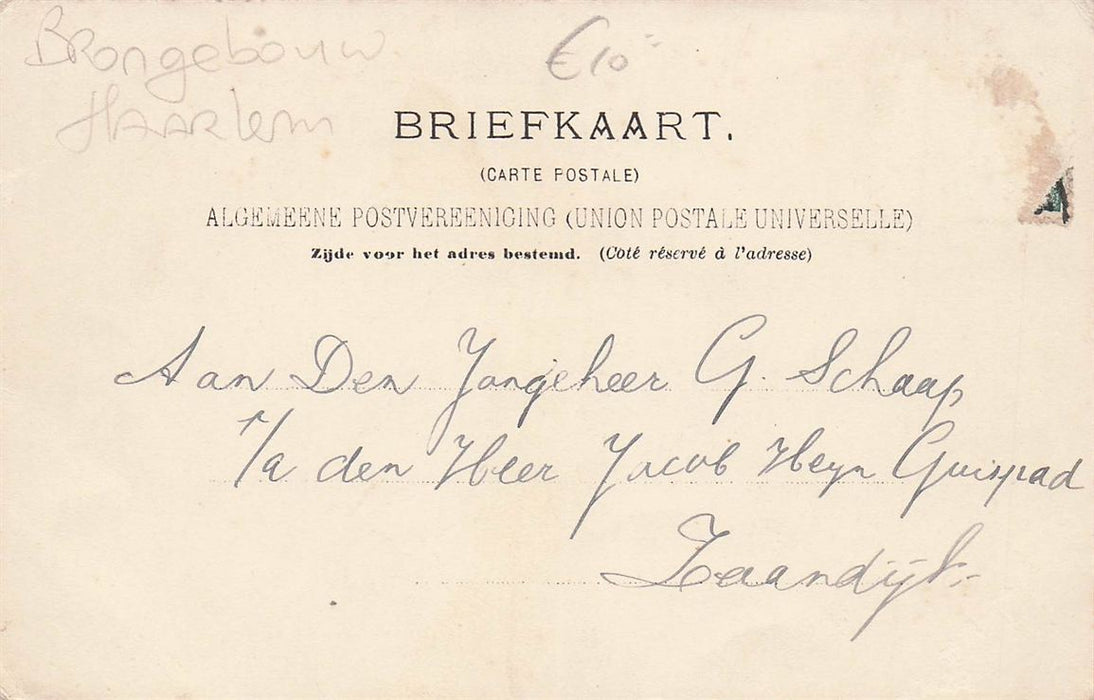 Brongebouw
Haarlem
€10=
BRIEFKAART.
(CARTE POSTALE)
ALGEMEENE POSTVEREENIGING (UNION POSTALE UNIVERSELLE)
Zijde voor het adres bestemd. (Côté réservé à l'adresse)
Aan Den Jongeheer G. Schaap
p/a den Heer Jacob Heyn Guispad
Zaandijk.